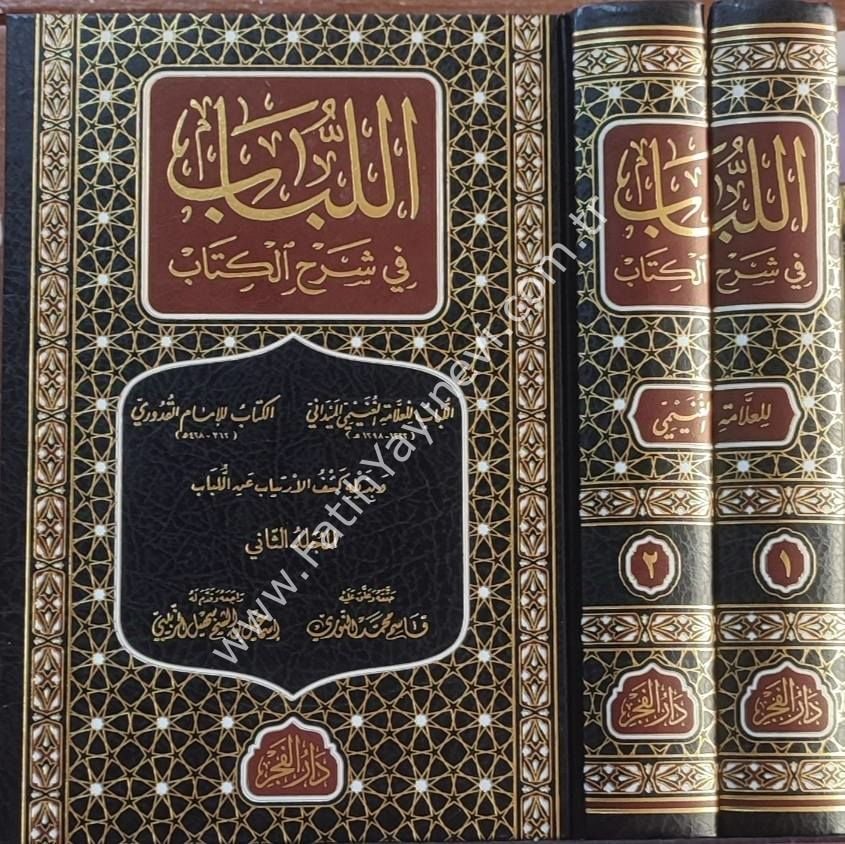 اللُّبَابُ
فِي شَرْحِ الْكِتَابِ
اللباب للعلامة الغنيمي الميداني
(١٢٢٢-١٢٩٨هـ)
الكتاب للإمام القدوري
(٣٦٢-٤٢٨هـ)
كشف الارتياب عن اللباب
المجلد الثاني
حققه وعلق عليه
قاسم محمد النوري
راجعه وقدم له
الشيخ سهيل الزبيبي
دار الفجر
اللُّبَابُ
فِي شَرْحِ الْكِتَابِ
للعلامة الغنيمي
٢
١
دار الفجر
دار الفجر
www.FatihYayinevi.com.tr